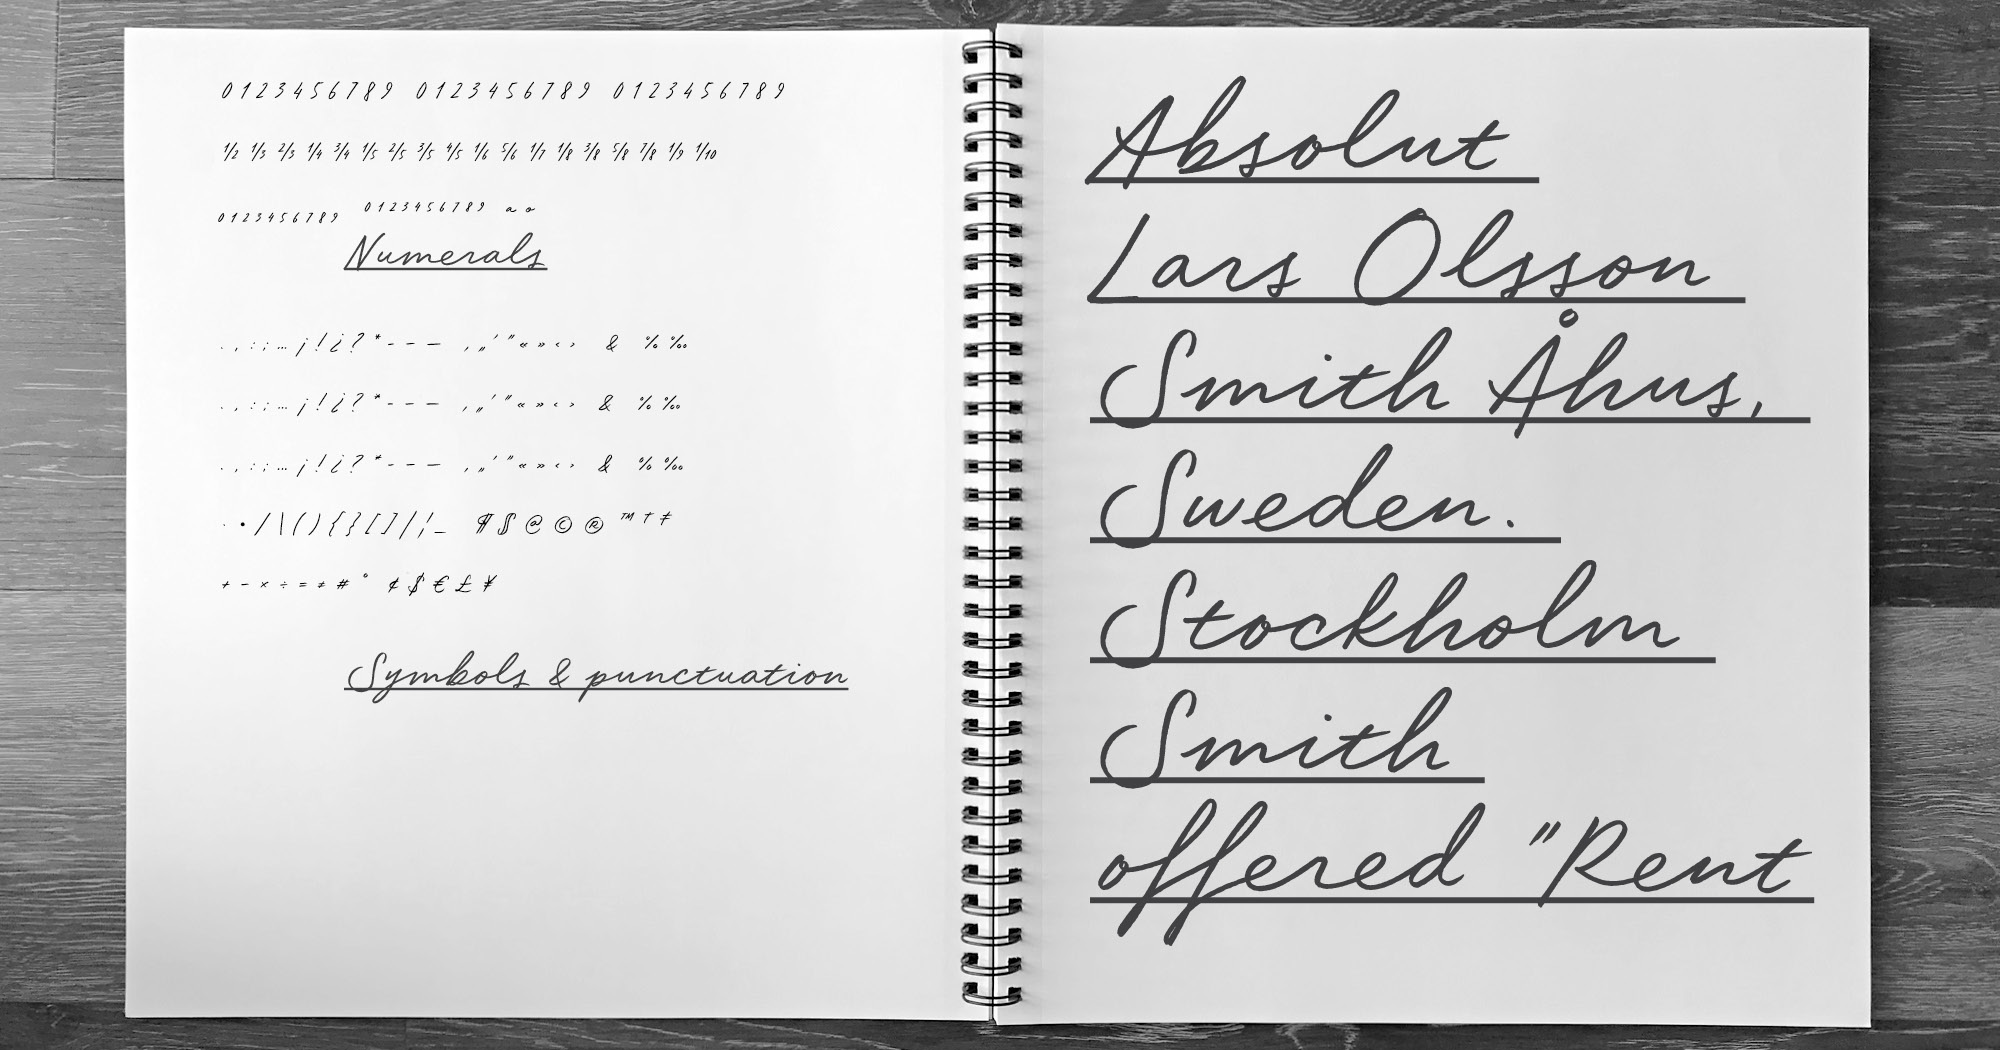 0123456789 0123456789 0123456789
1/2 1/3 2/3 1/4 3/4 1/5 2/5 3/5 4/5 1/6 5/6 1/7 1/8 3/8 5/8 7/8 1/9 1/10
0123456789 0123456789 a o
Numerals
. , : ; … ¡ ! ¿ ? * - – — ‚ „ ’ ” « » ‹ › & % ‰
. , : ; … ¡ ! ¿ ? * - – — ‚ „ ’ ” « » ‹ › & % ‰
. , : ; … ¡ ! ¿ ? * - – — ‚ „ ’ ” « » ‹ › & % ‰
· • / \ ( ) { } [ ] | ¦ _ ¶ § @ © ® ™ † ‡
+ − × ÷ = ≠ # ° ¢ $ € £ ¥
Symbols & punctuation
Absolut
Lars Olsson
Smith Åhus,
Sweden.
Stockholm
Smith
offered ”Rent